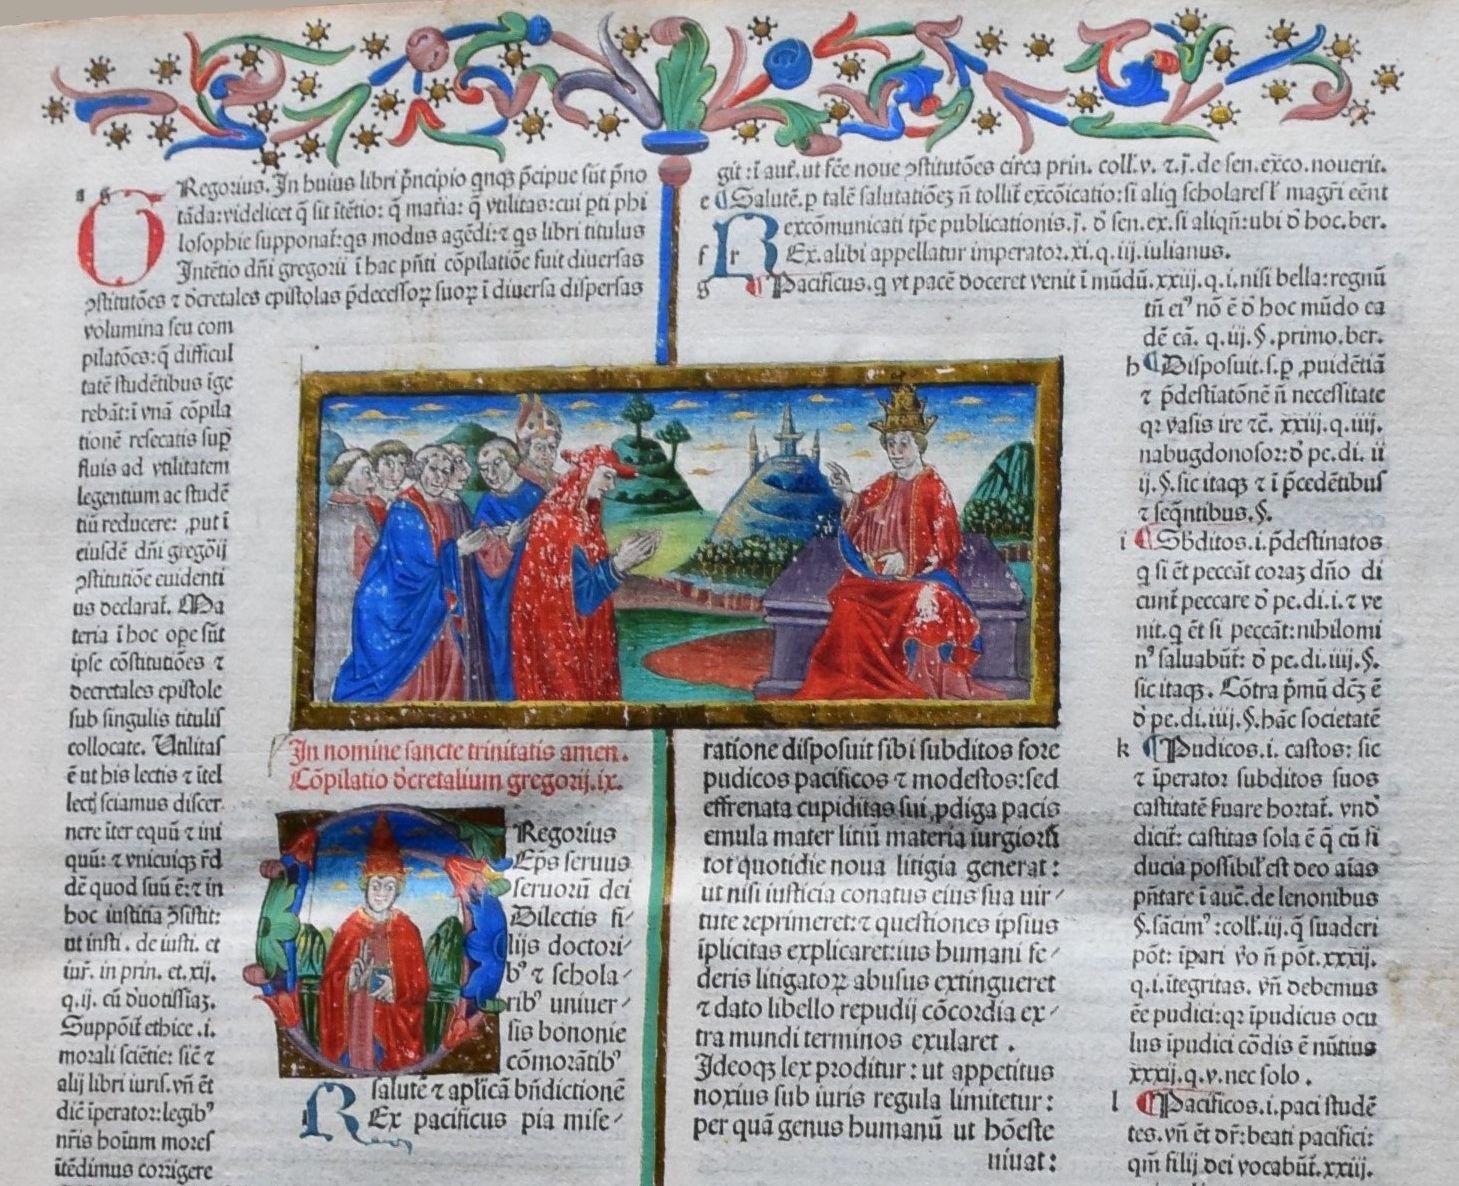 a g
Regorius. In huius libri p̄ncipio qnqꝫ p̄cipue sūt p̄no
tāda: videlicet q̄ sit ītētio: q̄ mat̄ia: q̄ vtilitas: cui ꝑti phi
losophie supponat̄: qs modus agēdi: ⁊ qs libri titulus
Intētio dn̄i gregorii ī hac pn̄ti cōpilatiōe fuit diuersas
ꝯstitutōes ⁊ decretales epistolas p̄decessoꝝ suoꝝ ī diuersa dispersas
volumina seu com
pilatōes: q̄ difficul
tatē studētibus īge
rebāt: ī vnā cōpila
tionē resecatis suꝑ
fluis ad vtilitatem
legentium ac studē
tiū reducere: ꝓut ī
eiusdē dn̄i gregorij
ꝯstitutiōe euidenti
us declarat̄. Ma
teria ī hoc oꝑe sūt
ipse cōstitutiōes ⁊
decretales epistole
sub singulis titulis
collocate. Utilitas
ē ut his lectis ⁊ ītel
lectꝭ sciamus discer
nere īter equū ⁊ ini
quū: ⁊ vnicuiqꝫ r̄d
dē quod suū ē: ⁊ in
hoc iustitia ꝯsistit:
ut insti. de iusti. et
iur̄. in prin. et. xij.
q. ij. cū deuotissiaꝫ.
Suppōit̄ ethice .i.
morali sciētie: sic̄ ⁊
alij libri iuris. vn̄ ēt
dic̄ īperator: legibꝰ
nr̄is hoīum mores
ītēdimus corrigere
In nomine sancte trinitatis amen.
Cōpilatio decretalium gregorij. ix.
Regorius
Ep̄s seruus
seruorū dei
Dilectis fi⸗
lijs doctori⸗
bꝰ ⁊ schola⸗
ribꝰ uniuer⸗
sis bononie
cōmorātibꝰ
salutē ⁊ aplicā bn̄dictionē
R Ex pacificus pia mise⸗
ratione disposuit sibi subditos fore
pudicos pacificos ⁊ modestos: sed
effrenata cupiditas sui ꝓdiga pacis
emula mater litiū materia iurgiorū
tot quotidie noua litigia generat:
ut nisi iusticia conatus eius sua uir⸗
tute reprimeret: ⁊ questiones ipsius
īplicitas explicaret: ius humani fe⸗
deris litigatoꝝ abusus extingueret
⁊ dato libello repudij cōcordia ex⸗
tra mundi terminos exularet .
Ideoqꝫ lex proditur: ut appetitus
noxius sub iuris regula limitetur:
per quā genus humanū ut hōeste
uiuat:
git: ī aut̄. ut fc̄e noue ꝯstitutōes circa prin. coll̄. v. ⁊. j. de sen. exc̄o. nouerit.
e Salutē. ꝑ talē salutatiōeꝫ n̄ tollit̄ excōicatio: si aliq scholares l̄ magr̄i eēnt
excōmunicati tp̄e publicationis. j. de sen. ex. si aliqn̄: ubi de hoc. ber.
f r Ex. alibi appellatur imperator. xi. q. iij. iulianus.
g Pacificus. q vt pacē doceret venit ī mūdū. xxiij. q. i. nisi bella: regnū
tn̄ eiꝰ nō ē de hoc mūdo ea
dē cā. q. iij. §. primo. ber.
h Disposuit. s. ꝑ ꝓuidētiā
⁊ p̄destiatōnē n̄ necessitate
qꝛ vasis ire ⁊c̄. xxiij. q. iiij.
nabugdonosor: de pe. di. ii
ij. §. sic itaqꝫ ⁊ ī p̄cedētibus
⁊ seqntibus. §.
i Sbditos. i. p̄destinatos
q si ēt peccāt coraꝫ dn̄o di
cunt̄ peccare de pe. di. i. ⁊ ve
nit. q ēt si peccāt: nihilomi
nꝰ saluabūt̄: de pe. di. iiij. §.
sic itaqꝫ. Cōtra p̄mū dcꝫ ē
de pe. di. iiij. §. hāc societatē
k Pudicos. i. castos: sic
⁊ īperator subditos suos
castitatē ẜuare hortat̄. vnde
dicit̄: castitas sola ē q̄ cū fi
ducia possibil̓ est deo aīas
pn̄tare ī auc̄. de lenonibus
§. sācimꝰ: coll̄. iij. q̄ suaderi
pōt: īpari vo n̄ pōt. xxxij.
q. i. ītegritas. vn̄ debemus
eē pudici: qꝛ īpudicus ocu
lus īpudici cōdis ē nūtius
xxxij. q. v. nec solo .
l Pacificos. i. paci studē
tes. vn̄ ēt dr̄: beati pacifici:
qm̄ filij dei vocabūt̄. xxiij.